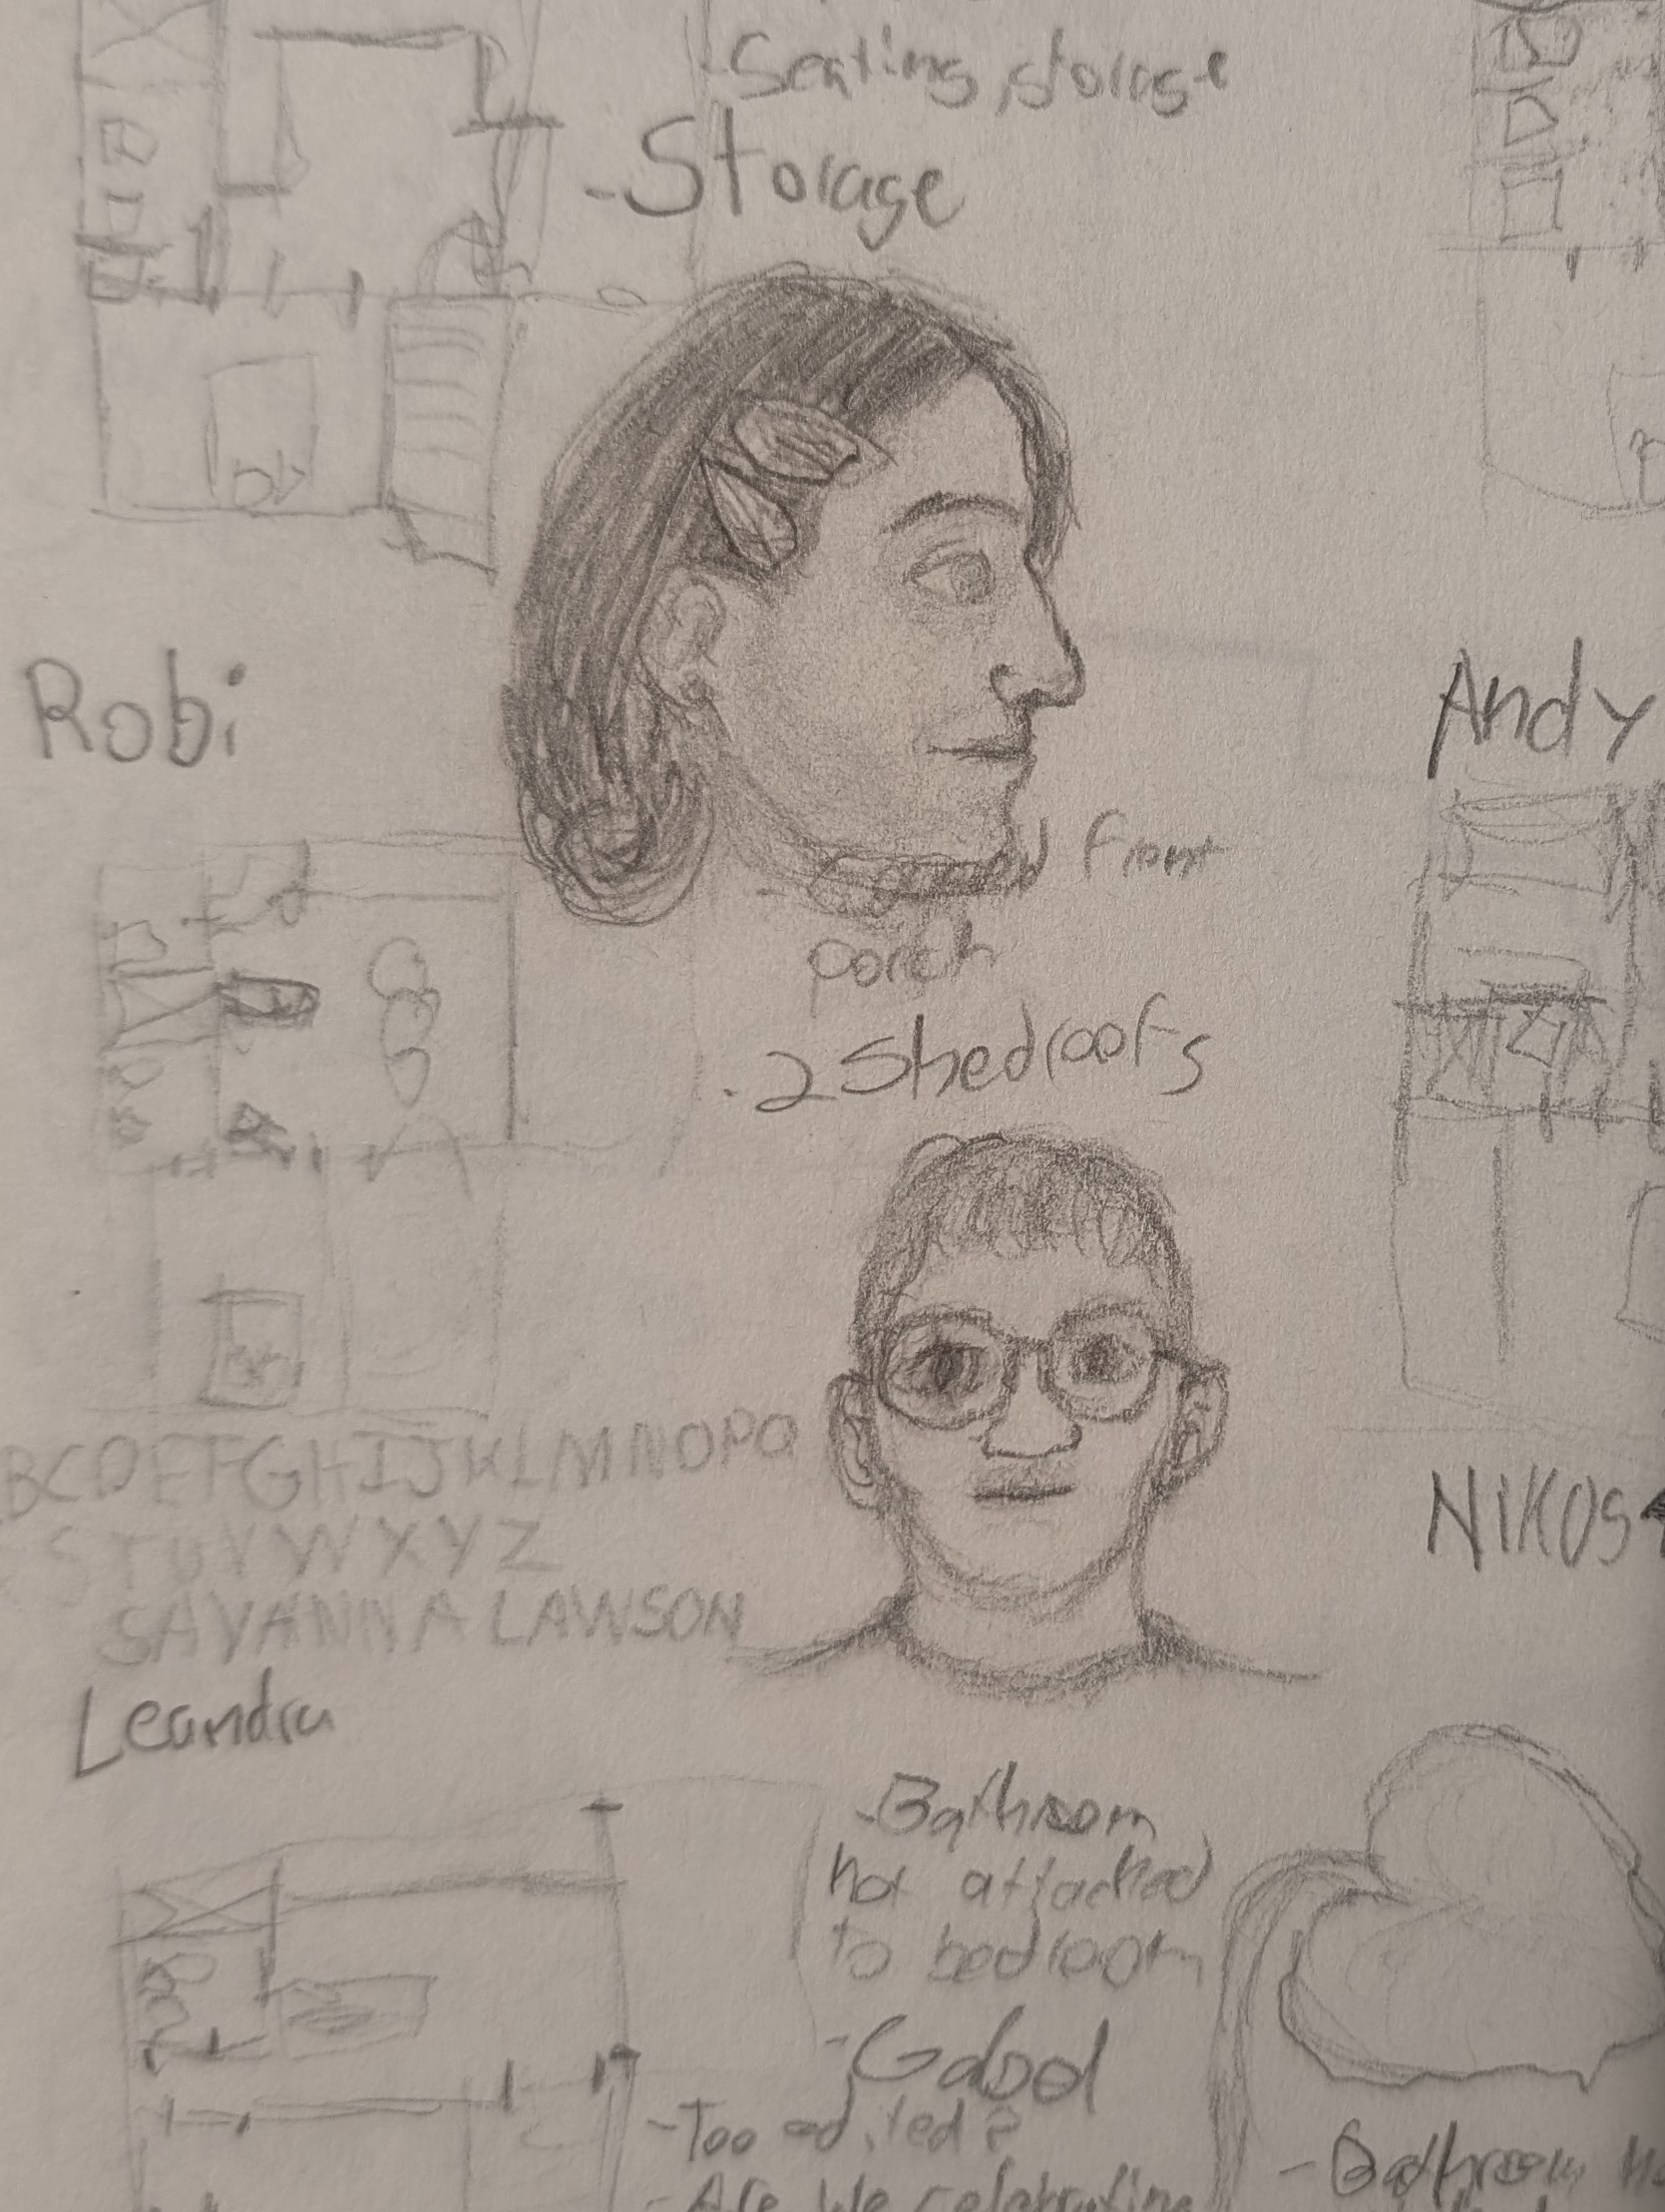 -Seating, storage
-Storage
Robi
Andy
front
porch
.2 Shed roofs
BCDEFGHIJKLMNOPQ
STUVWXYZ
SAVANNA LAWSON
NIKOS
Leandra
-Bathroom
not attached
to bedroom
-Gabool
-Too edited?
-Bathroom
-Are we celebrating